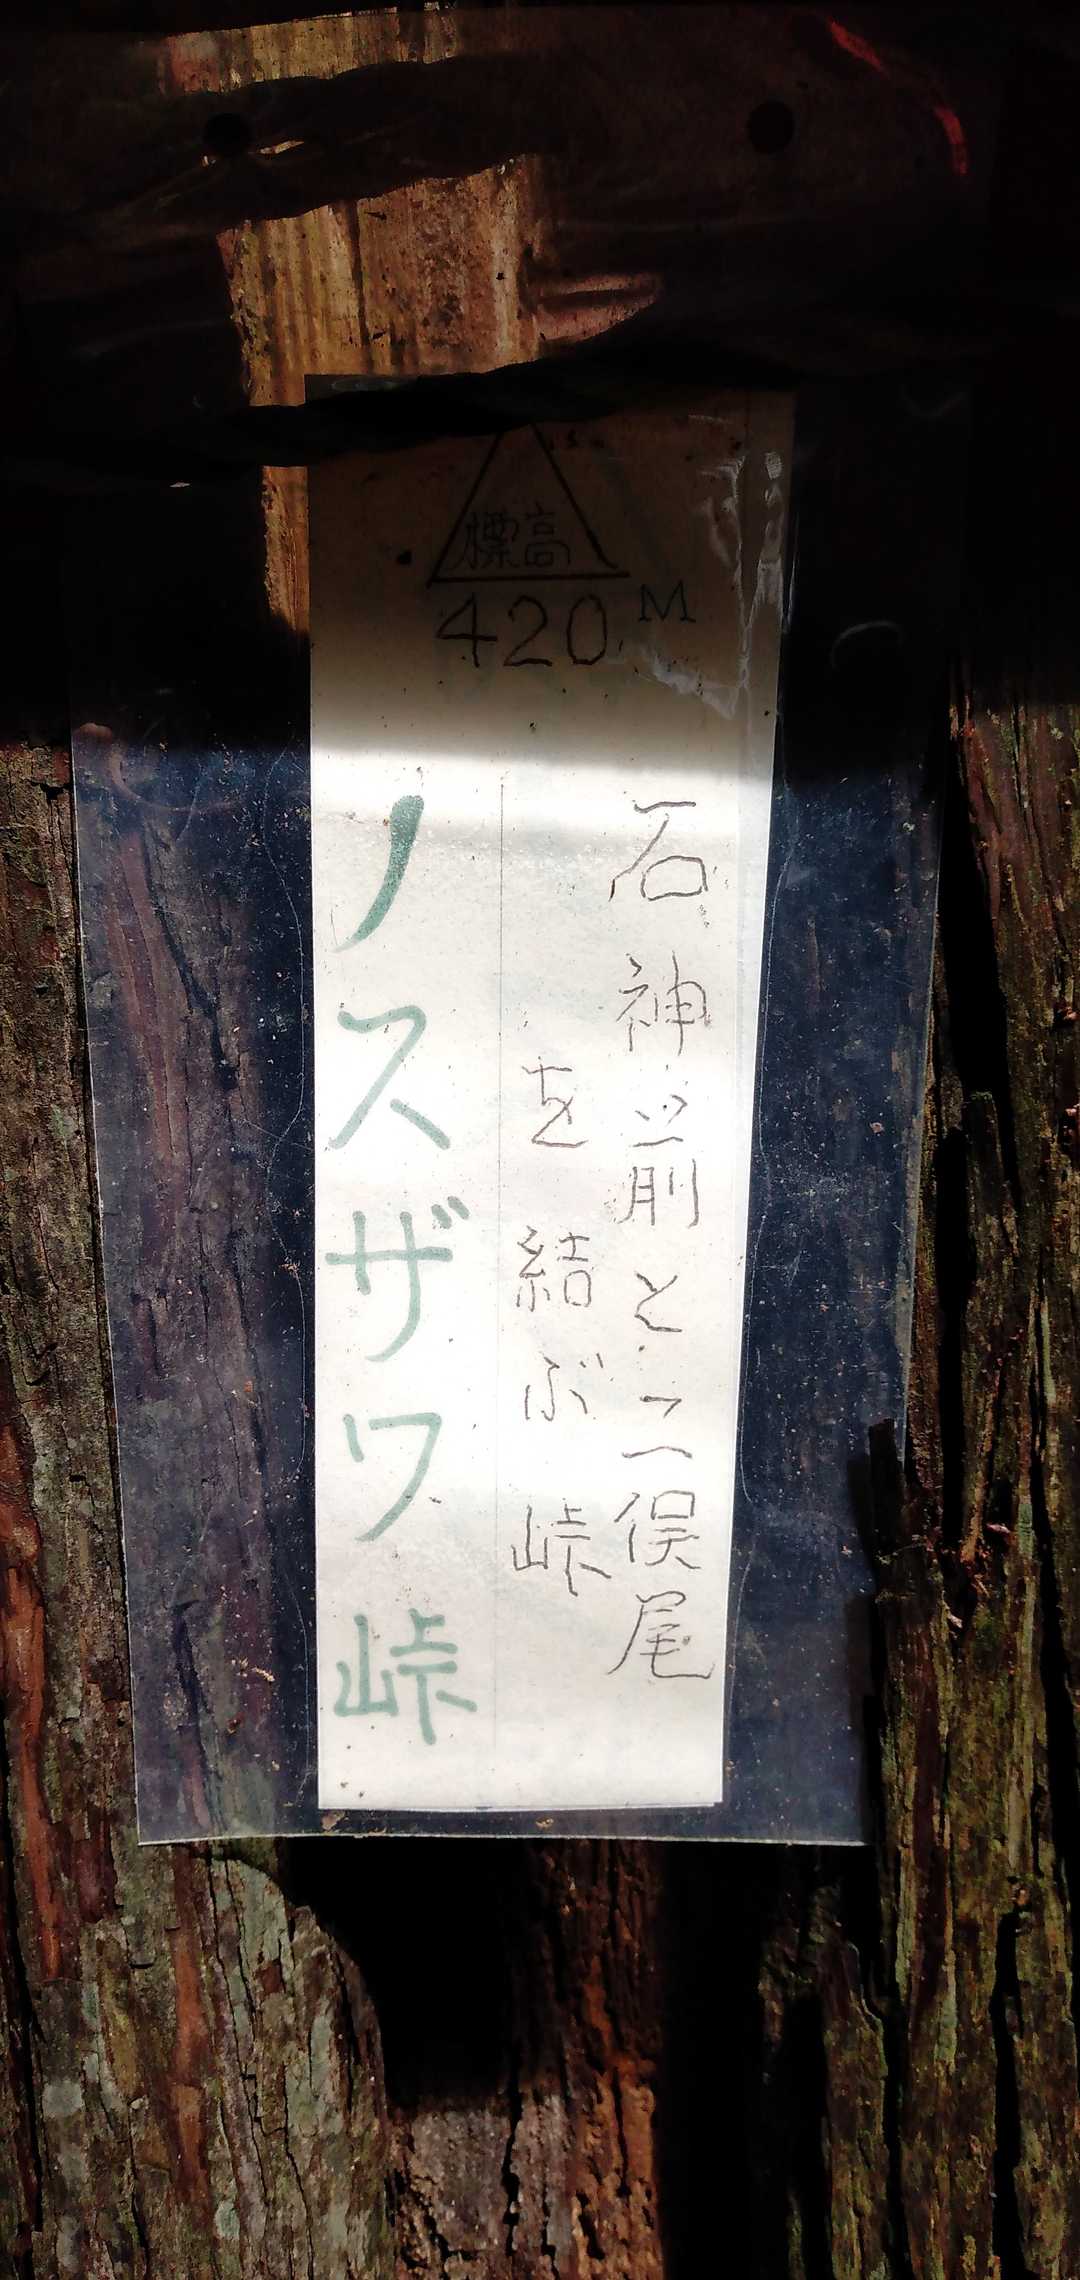 標高
420M
石神前と二俣尾
を結ぶ峠
ノスザワ峠